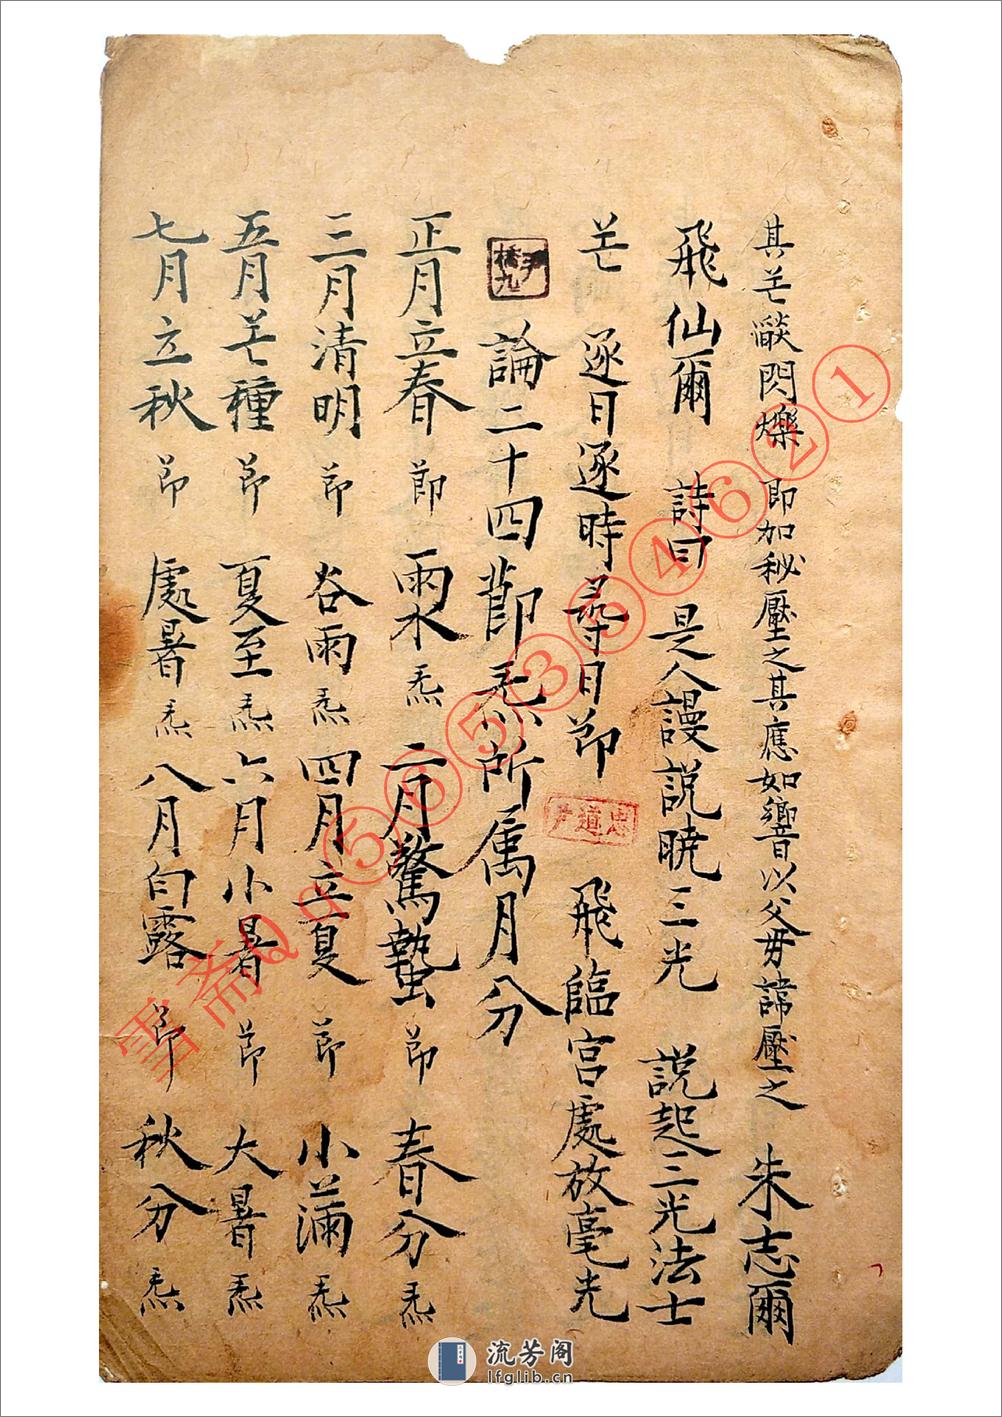 其芒燄閃爍 即加秘壓之其應如響以父母諱壓之 朱志爾
飛仙爾 詩曰 是人謾説曉三光 説起三光法士
芒 逐日逐時尋日節 飛臨宫處放毫光
論二十四節炁所属月分
正月立春 節 雨水 炁 二月驚蟄 節 春分 炁
三月清明 節 谷雨 炁 四月立夏 節 小滿 炁
五月芒種 節 夏至 炁 六月小暑 節 大暑 炁
七月立秋 節 處暑 炁 八月白露 節 秋分 炁
忠道
雪斋Qq565354621
流芳阁
lfglib.cn